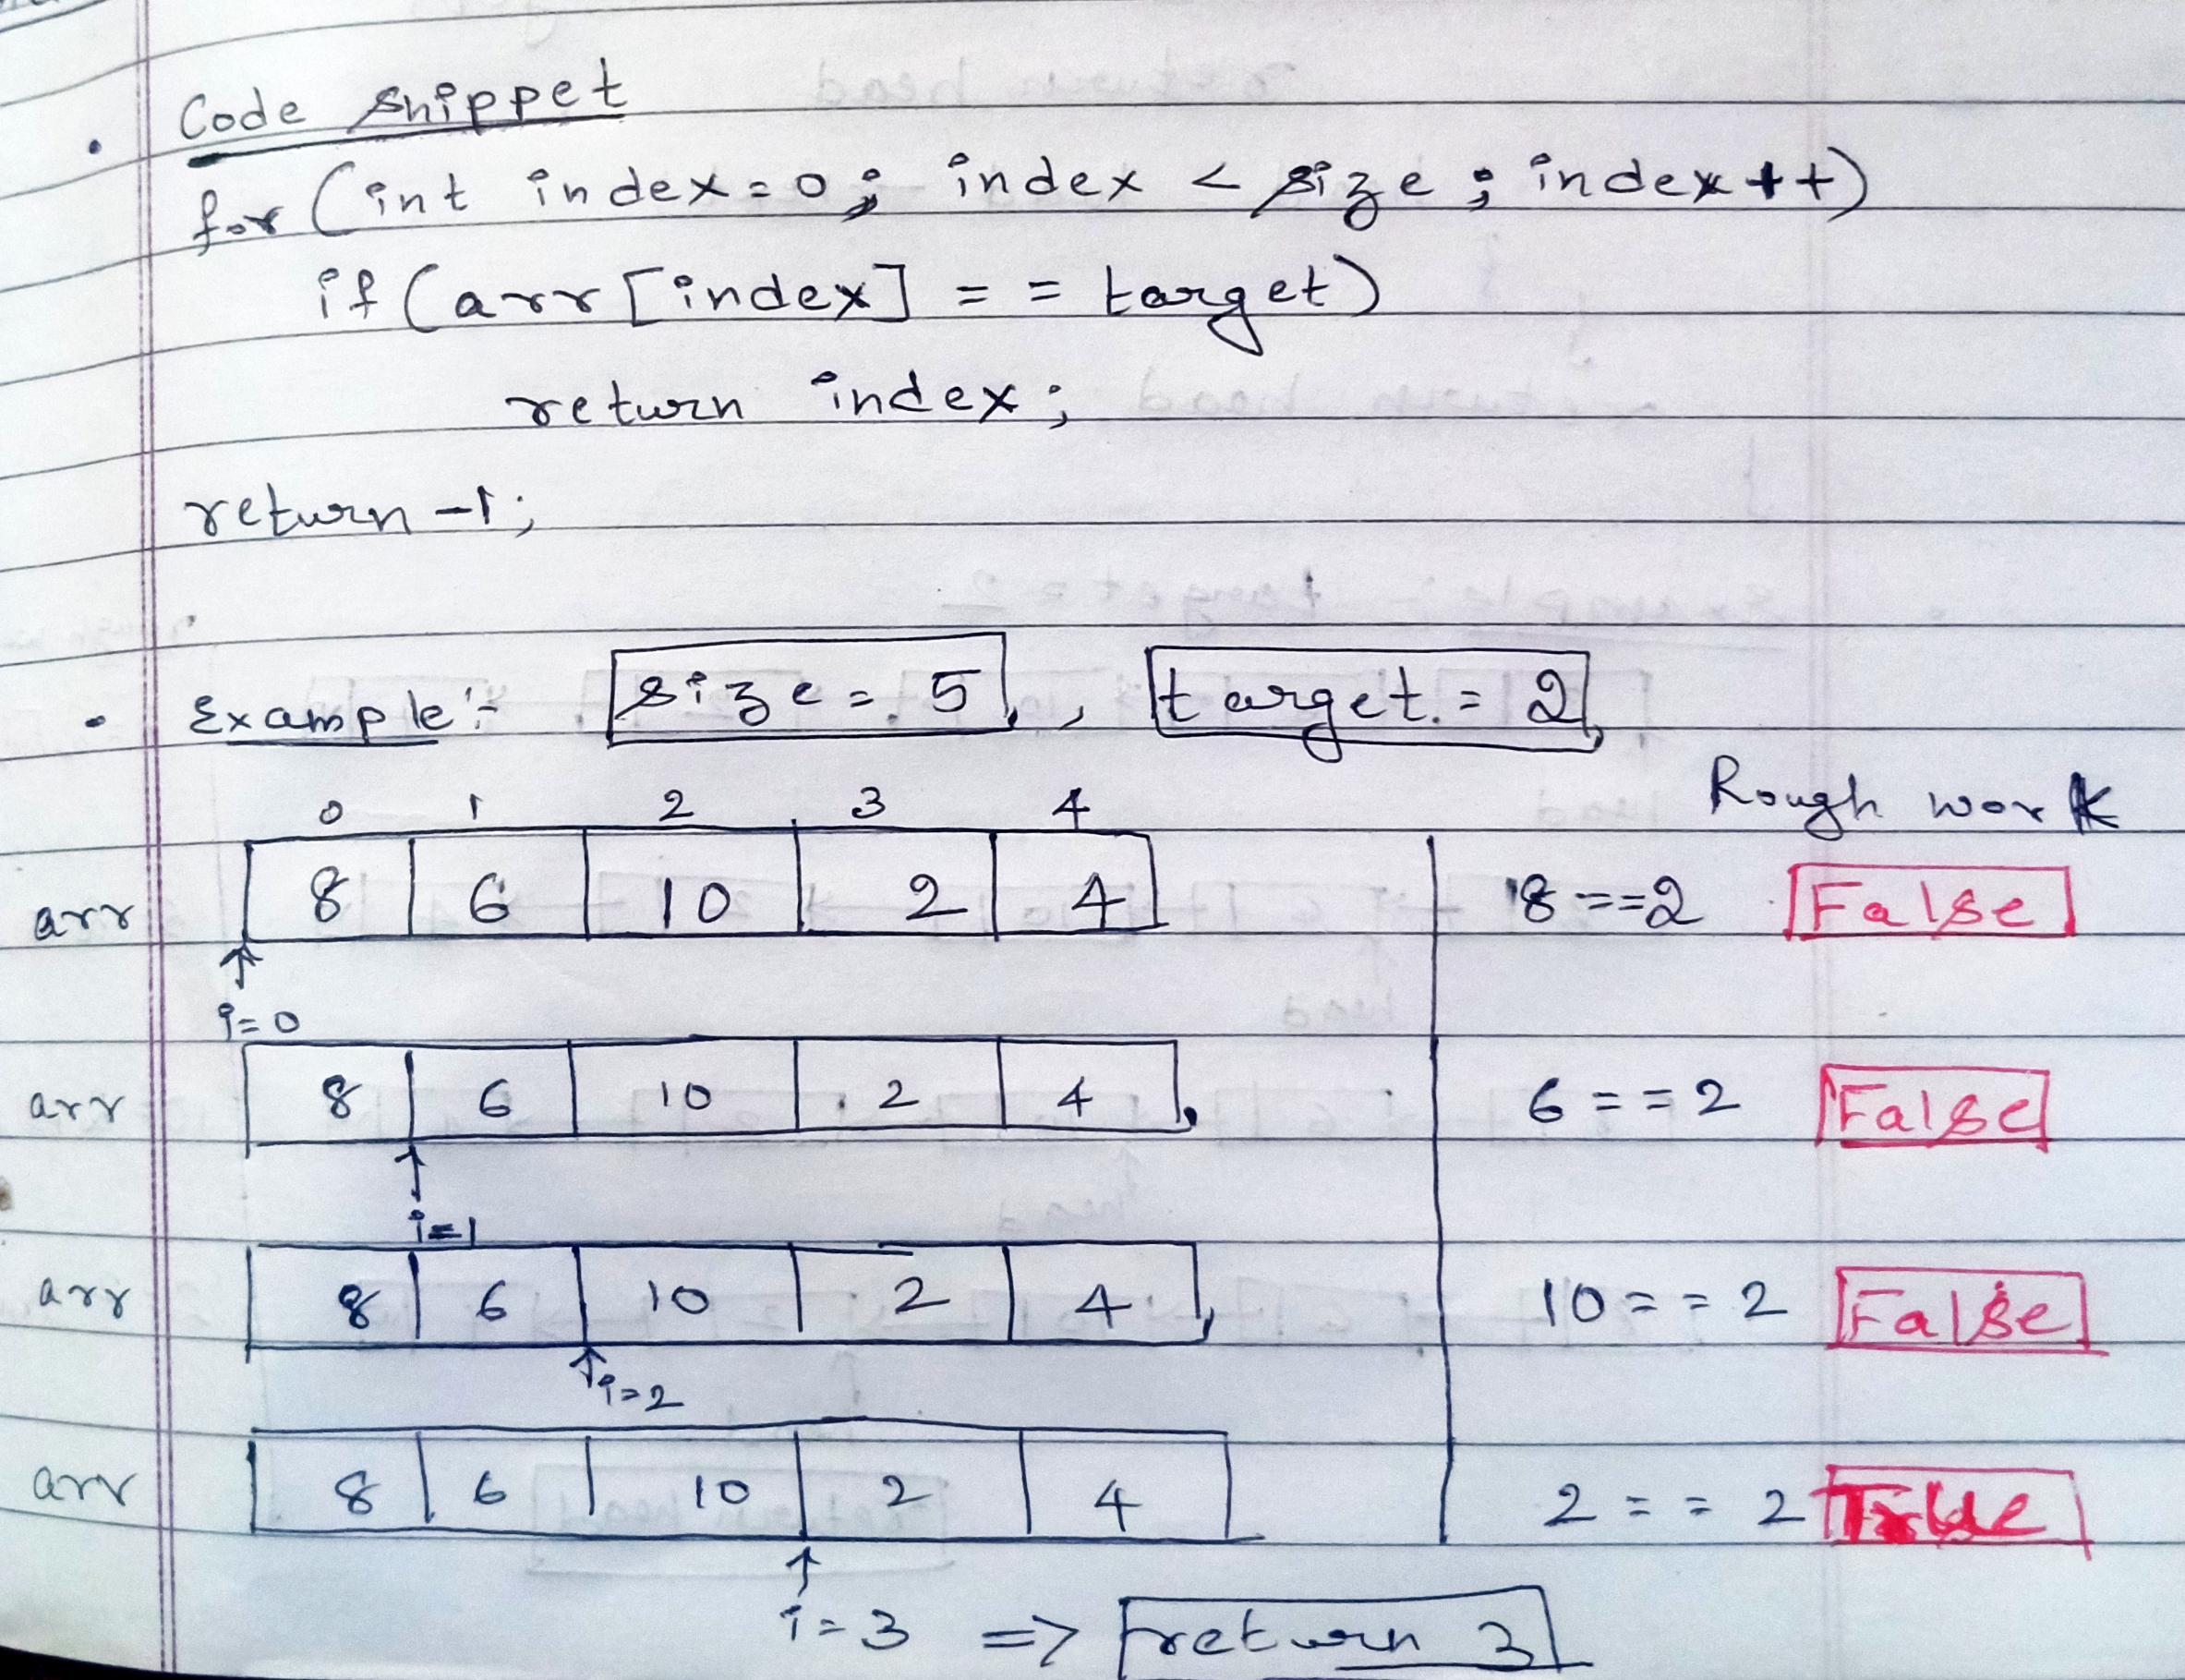 Code snippet
for (int index=0; index < size; index++)
if (arr[index] == target)
return index;
return -1;
Example:- size = 5, target = 2
0 1 2 3 4 Rough work
arr 8 6 10 2 4 8 == 2 False
i=0
arr 8 6 10 2 4 6 == 2 False
i=1
arr 8 6 10 2 4 10 == 2 False
i=2
arr 8 6 10 2 4 2 == 2 True
i=3 => return 3